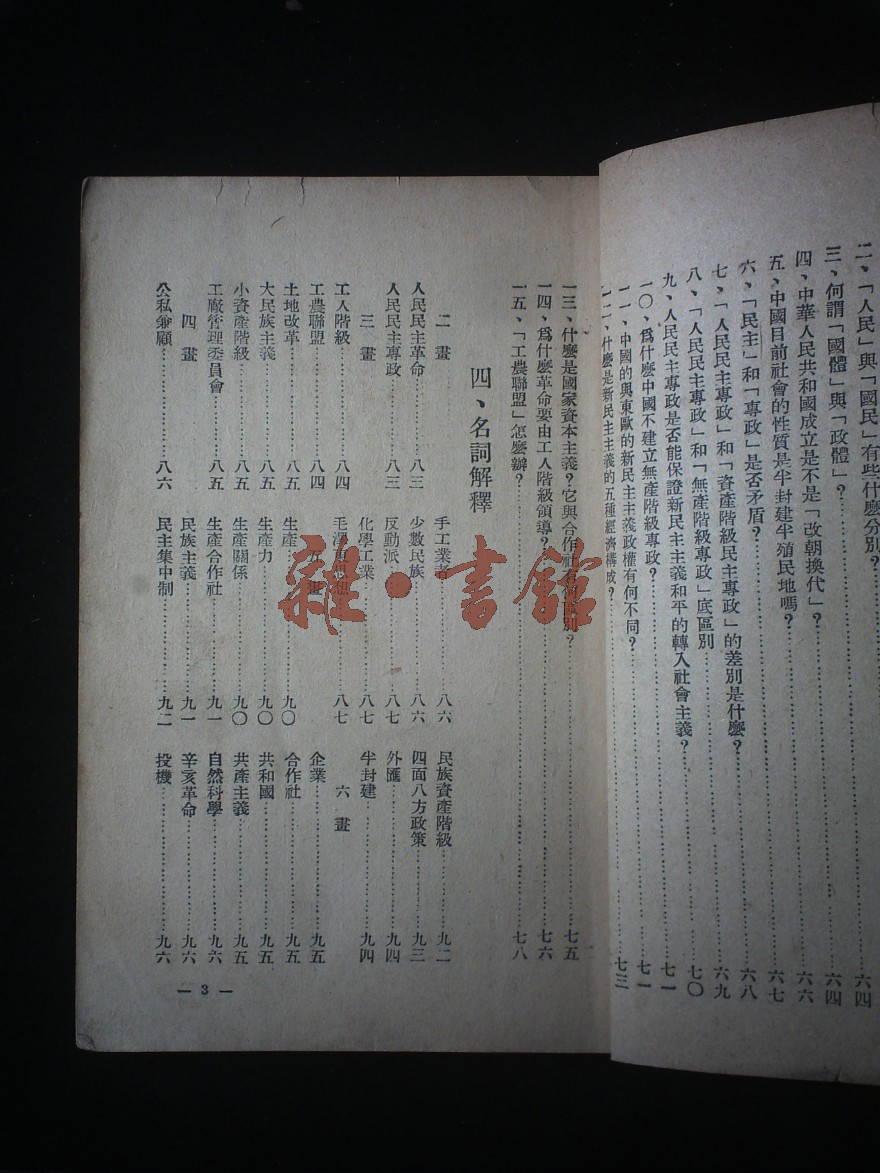 二、「人民」與「國民」有些什麽分別?……六四
三、何謂「國體」與「政體」?……六四
四、中華人民共和國成立是不是「改朝換代」?……六六
五、中國目前社會的性質是半封建半殖民地嗎?……六七
六、「民主」和「專政」是否矛盾?……六八
七、「人民民主專政」和「資產階級民主專政」的差別是什麽?……六九
八、「人民民主專政」和「無產階級專政」底區別……七〇
九、人民民主專政是否能保證新民主主義和平的轉入社會主義?……七一
一〇、爲什麽中國不建立無產階級專政?……七一
一一、中國的與東歐的新民主主義政權有何不同?
一二、什麽是新民主主義的五種經濟構成?……七三
一三、什麽是國家資本主義?它與合作社有何區別?……七五
一四、爲什麽革命要由工人階級領導?……七六
一五、「工農聯盟」怎麽辦?……七八
四、名詞解釋
二畫
人民民主革命……八三
人民民主專政……八三
三畫
工人階級……八四
工農聯盟……八四
土地改革……八五
大民族主義……八五
小資產階級……八五
工廠管理委員會……八五
四畫
公私兼顧……八六
手工業者……八六
少數民族……八六
反動派……八七
化學工業……八七
毛澤東思想……八七
五畫
生產……九〇
生產力……九〇
生產關係……九〇
生產合作社……九一
民族主義……九一
民主集中制……九二
民族資產階級……九二
四面八方政策……九三
外匯……九四
半封建……九四
六畫
企業……九五
合作社……九五
共和國……九五
共產主義……九五
自然科學……九六
辛亥革命……九六
投機……九六
— 3 —
雜·書館